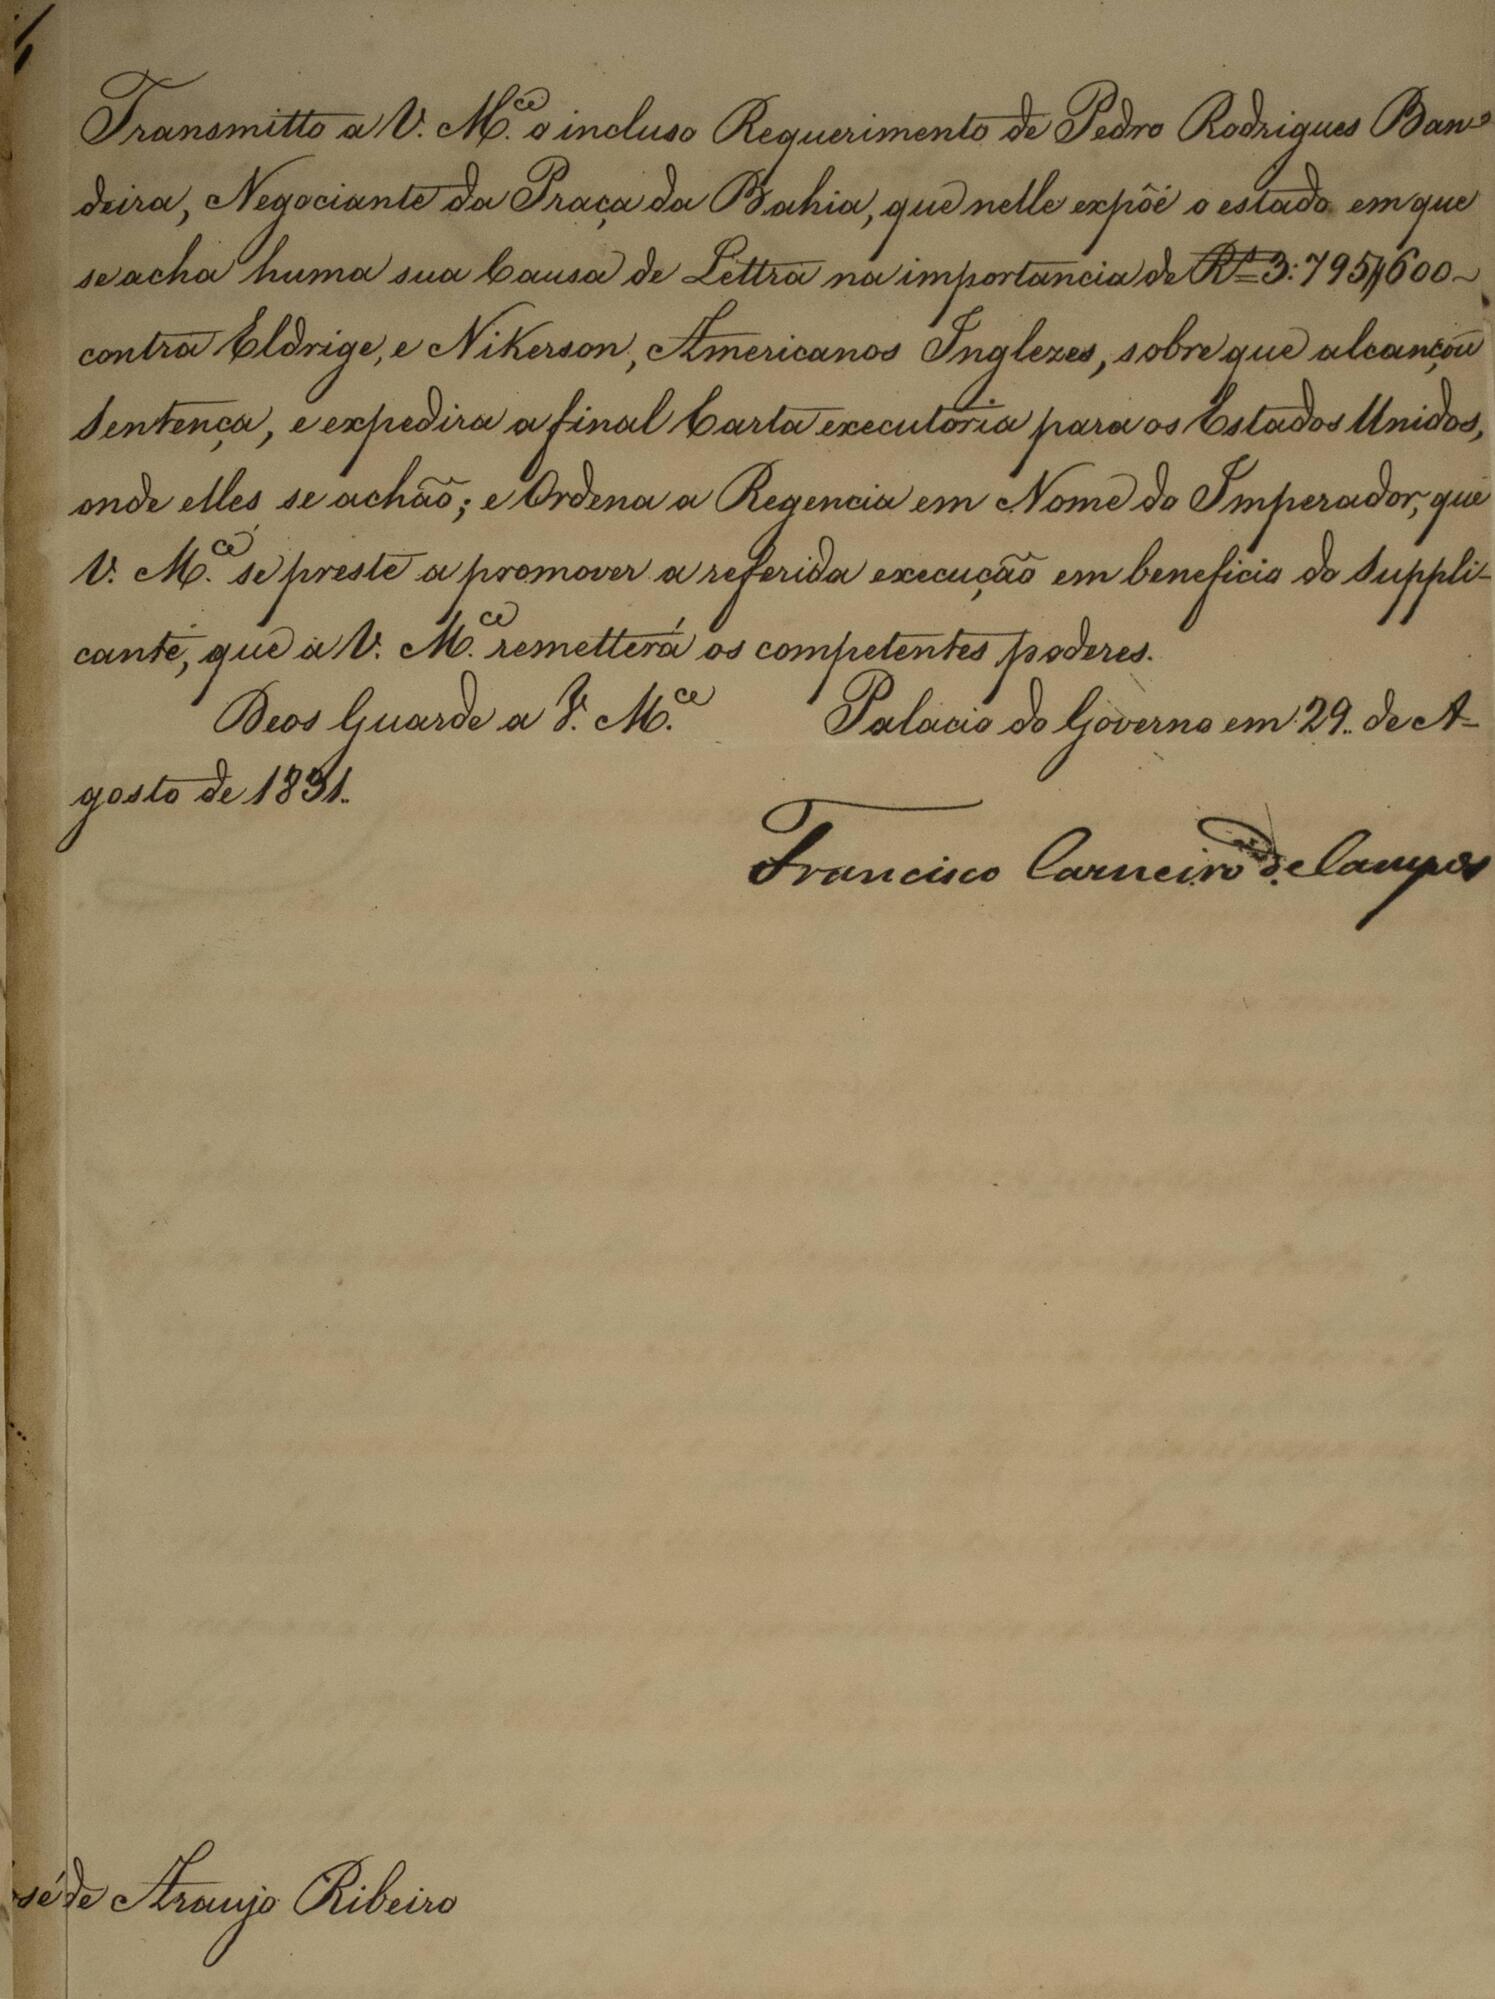 Transmitto a V. M.ce o incluso Requerimento de Pedro Rodrigues Ban=
deira, Negociante da Praça da Bahia, que nelle expôe o estado em que
se acha huma sua Causa de Lettra na importancia de Rs 3:795$600~
contra Eldrige, e Nikerson, Americanos Inglezes, sobre que alcançou
Sentença, e expedira a final Carta executoria para os Estados Unidos,
onde elles se achão; e Ordena a Regencia em Nome do Imperador, que
V. M.ce se preste a promover a referida execução em beneficio do Suppli-
cante, que a V. M.ce remetterá os competentes poderes.
Deos Guarde a V. M.ce Palacio do Governo em 29.. de A=
gosto de 1831..
Francisco Carneiro de Campos
sé de Araujo Ribeiro